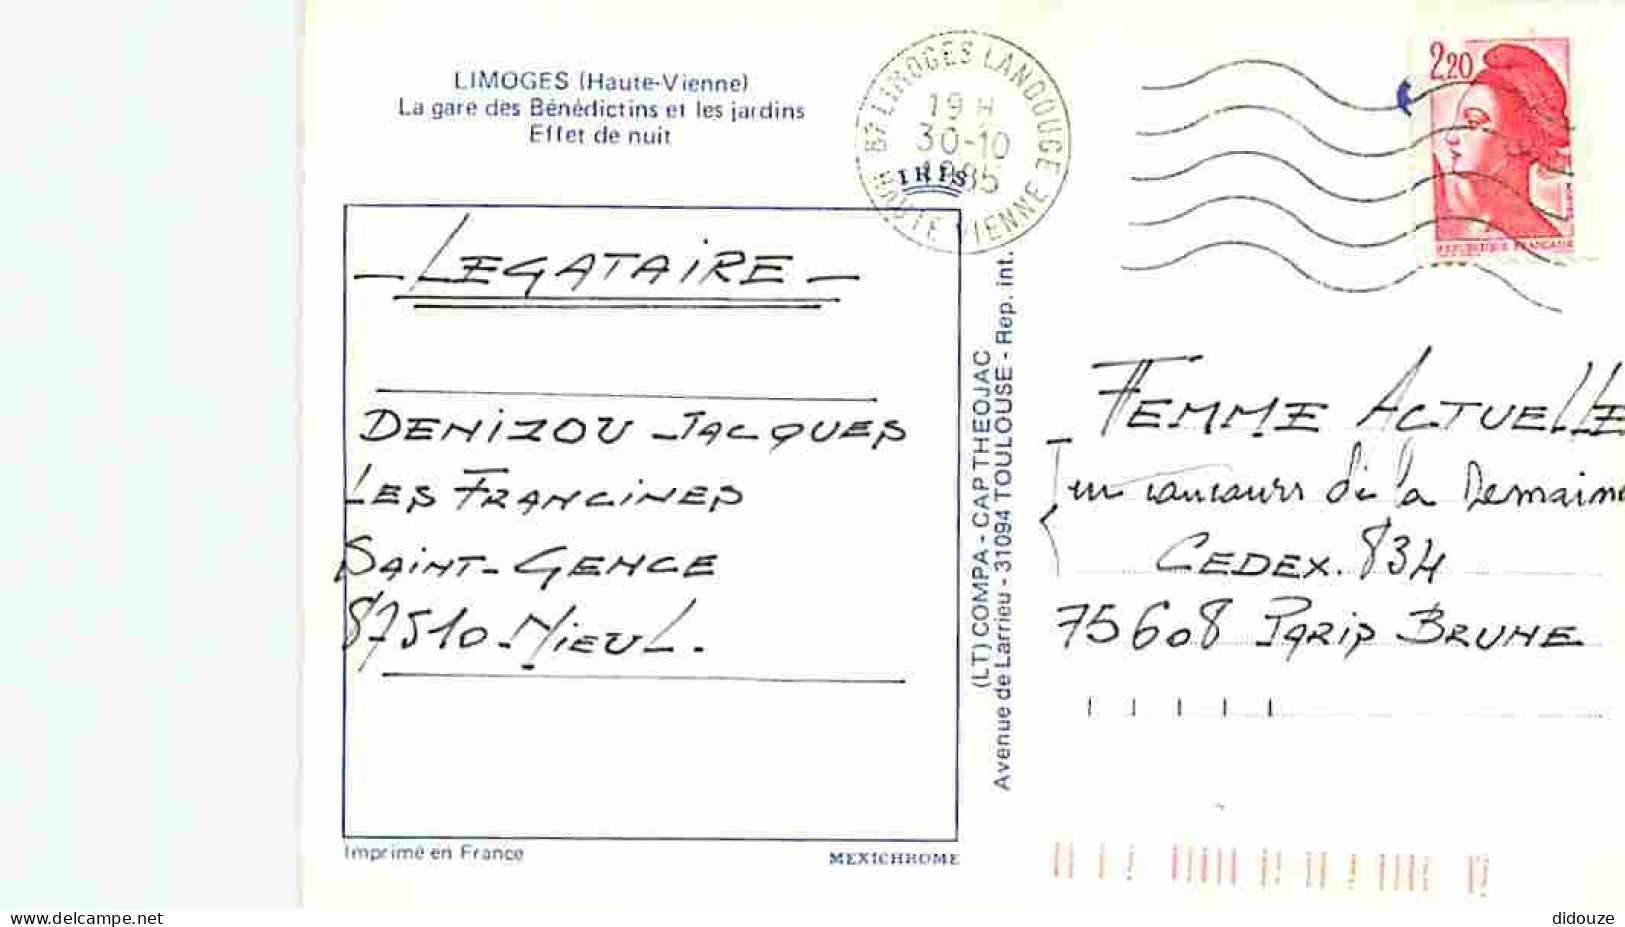 LIMOGES (Haute-Vienne)
La gare des Bénédictins et les jardins
Effet de nuit
87 LIMOGES LANDOUGE
19 H
30-10
1985
HAUTE VIENNE
IRIS
2,20
REPUBLIQUE FRANCAISE
- LEGATAIRE -
DENIZOU JACQUES
LES FRANCINES
SAINT-GENCE
87510 - NIEUL.
(LT) COMPA - CAP THEOJAC
Avenue de Larrieu - 31094 TOULOUSE - Rep. int.
FEMME ACTUELLE
concours de la Semaine
CEDEX. 834
75608 PARIS BRUNE
Imprimé en France
MEXICHROME
www.delcampe.net
didouze